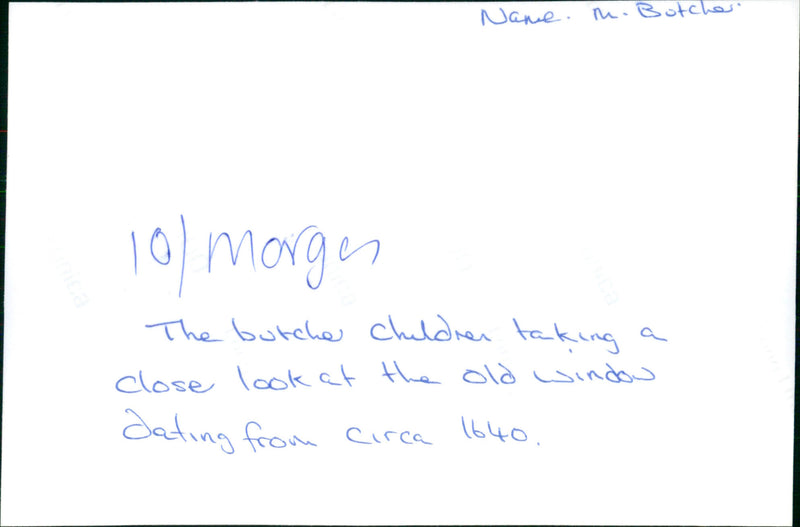 Name. M. Butcher.
10/ Morgan
The butcher children taking a
close look at the old window
dating from circa 1640.